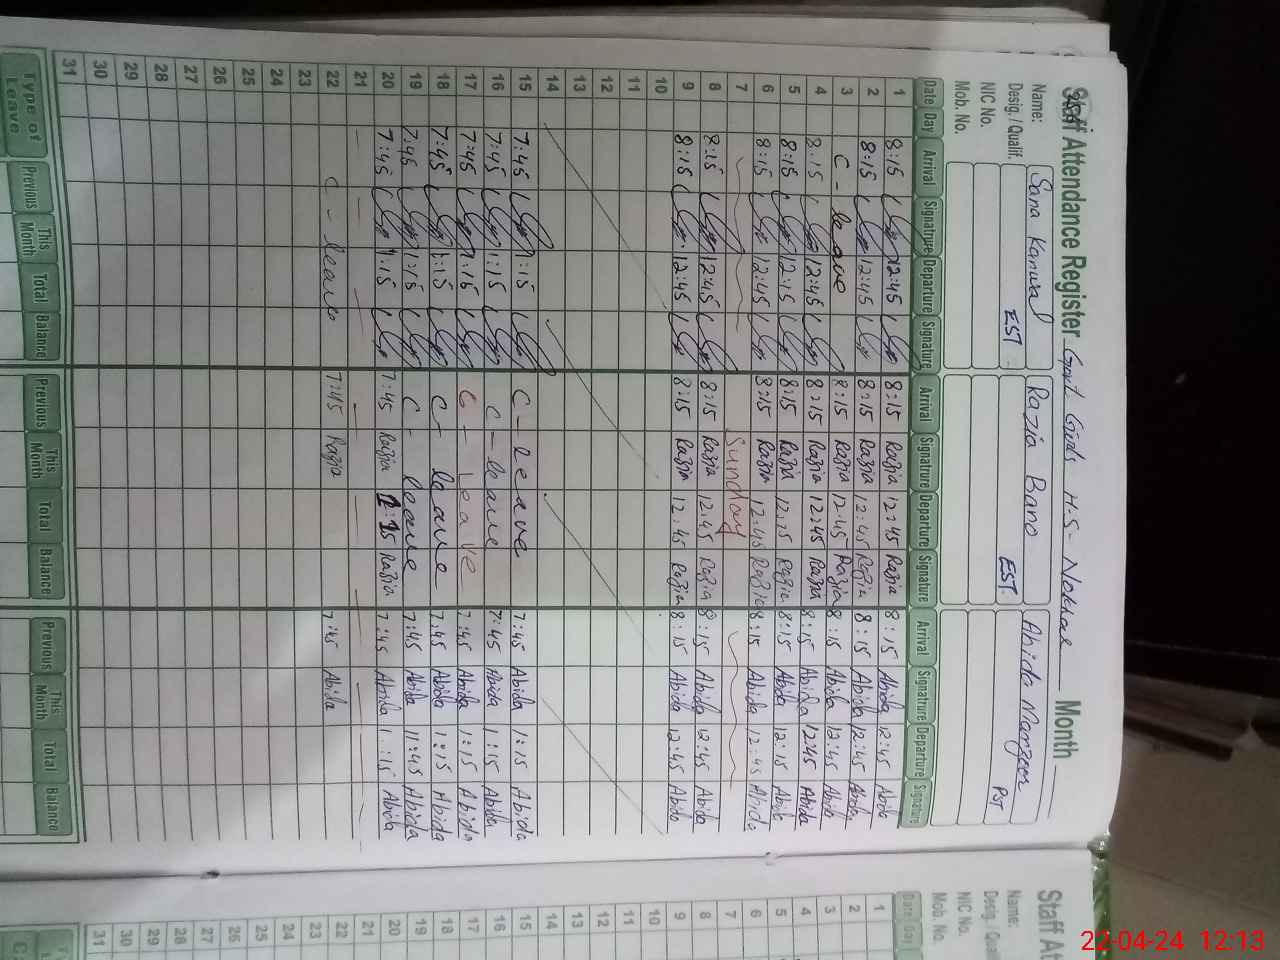 Staff Attendance Register Govt Girls H-S- Nokhar Month
Name: Sana Kanwal Razia Bano Abida Manzoor
Desig./ Qualif. EST EST. PST
NIC No.
Mob. No.
Date Day Arrival Signatrure Departure Signature Arrival Signatrure Departure Signature Arrival Signatrure Departure Signature
1 8:15 12:45 8:15 Razia 12:45 Razia 8:15 Abida 12:45 Abida
2 8:15 12:45 8:15 Razia 12:45 Razia 8:15 Abida 12:45 Abida
3 C - leave 8:15 Razia 12:45 Razia 8:15 Abida 12:45 Abida
4 8:15 12:45 8:15 Razia 12:45 Razia 8:15 Abida 12:45 Abida
5 8:15 12:15 8:15 Razia 12:15 Razia 8:15 Abida 12:15 Abida
6 8:15 12:45 8:15 Razia 12:45 Razia 8:15 Abida 12:45 Abida
7 Sunday
8 8:15 12:45 8:15 Razia 12:45 Razia 8:15 Abida 12:45 Abida
9 8:15 12:45 8:15 Razia 12:45 Razia 8:15 Abida 12:45 Abida
10
11
12
13
14
15 7:45 1:15 C - leave 7:45 Abida 1:15 Abida
16 7:45 1:15 C - leave 7:45 Abida 1:15 Abida
17 7:45 1:15 C - Leave 7:45 Abida 1:15 Abida
18 7:45 1:15 C - leave 7:45 Abida 1:15 Abida
19 7:45 1:15 C - leave 7:45 Abida 11:45 Abida
20 7:45 1:15 7:45 Razia 1:15 Razia 7:45 Abida 1:15 Abida
21
22 C - leave 7:45 Razia 7:45 Abida
23
24
25
26
27
28
29
30
31
Type of Leave Previous This Month Total Balance Previous This Month Total Balance Previous This Month Total Balance
Staff At
Name:
Desig. / Qua
NIC No.
Mob. No.
Date Day
1
2
3
4
5
6
7
8
9
10
11
12
13
14
15
16
17
18
19
20
21
22
23
24
25
26
27
28
29
30
31
22-04-24 12:13